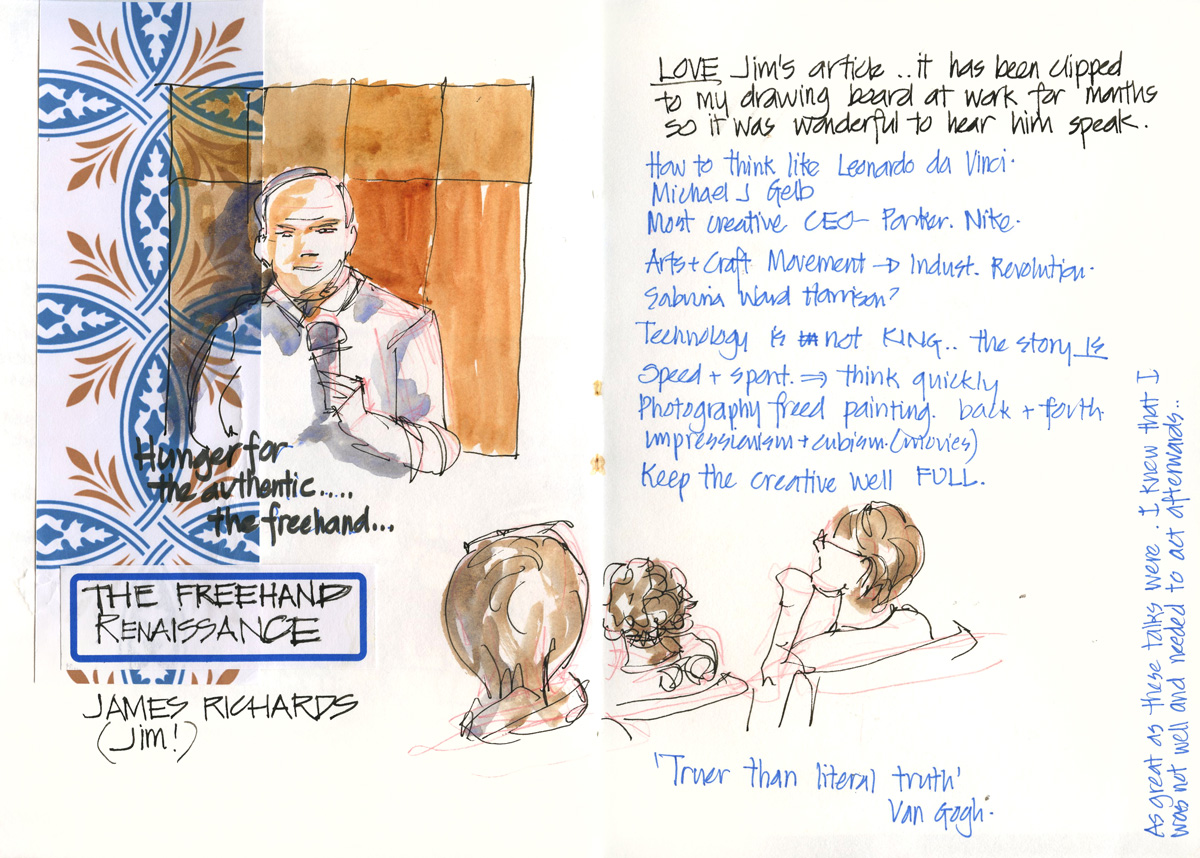 Hunger for
the authentic.....
the freehand...
THE FREEHAND
RENAISSANCE
JAMES RICHARDS
(Jim!)
LOVE Jim's article ..it has been clipped
to my drawing board at work for months
so it was wonderful to hear him speak.
How to think like Leonardo da Vinci.
Michael J Gelb
Most creative CEO - Parker. Nike.
Arts + Craft Movement → Indust. Revolution.
Sabrina Ward Harrison?
Technology is not KING.. the story IS
Speed + spont. ⇒ think quickly
Photography freed painting. back + forth.
Impressionism + cubism. (movies)
Keep the creative well FULL.
'Truer than literal truth'
Van Gogh.
As great as these talks were. I knew that I
was not well and needed to act afterwards..